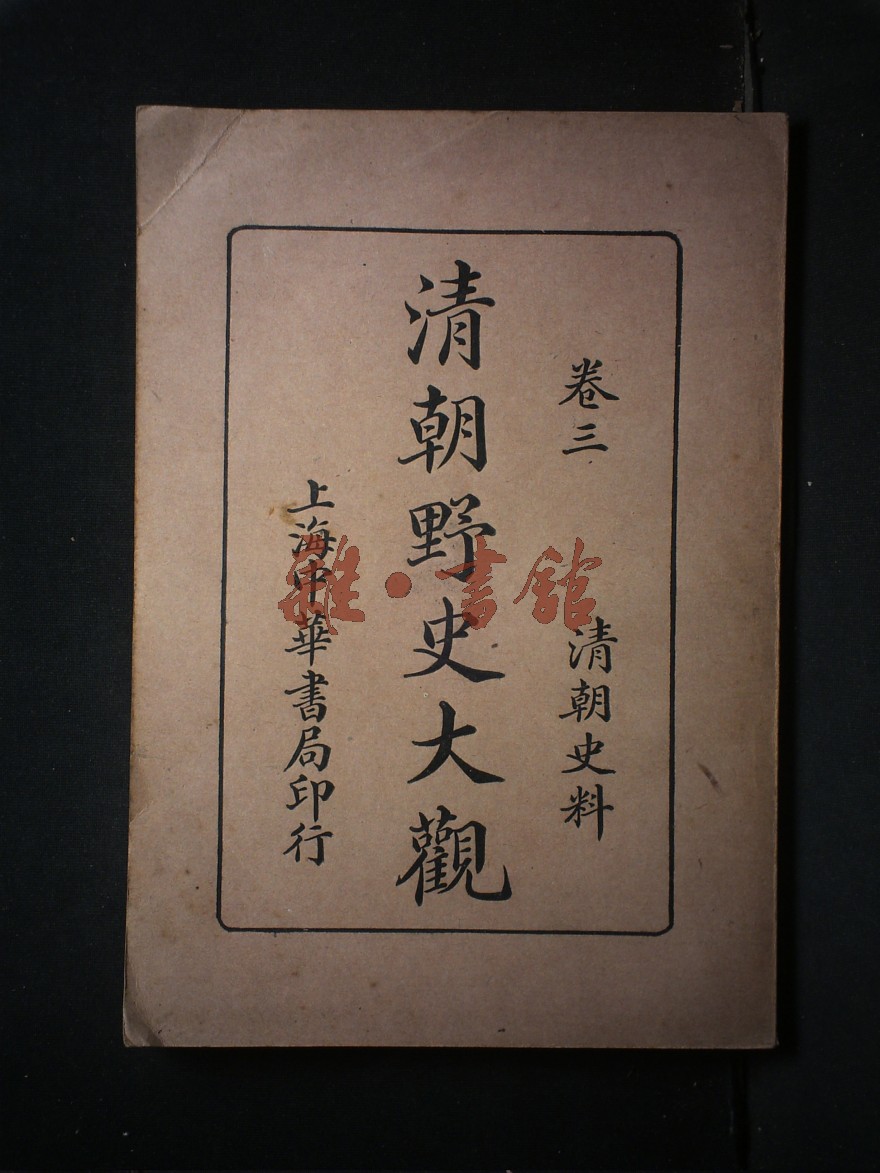 卷三　清朝史料
清朝野史大觀
上海中華書局印行
雜·書館